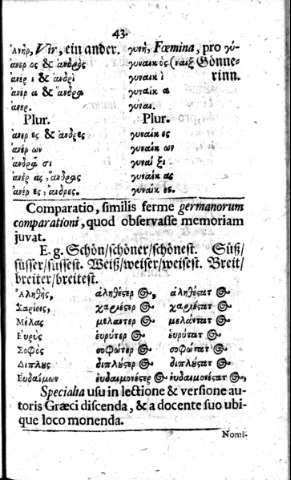 43.
Ἀνὴρ, Vir, ein ander. γυνή, Fœmina, pro γύ-
ἀνερ ος & ἀνδρὸς γυναικ ὸς (ναιξ Gönne-
ἀνέρ ι & ἀνδρὶ γυναικ ὶ rinn.
ἀνέρ α & ἄνδρα γυναῖκ α
ἄνερ. γύναι.
Plur. Plur.
ἀνέρ ες & ἄνδρες γυναῖκ ες
ἀνέρ ων γυναικ ων
ἀνδρά σι γυναι ξι
ἀνέρ ας & ἄνδρας γυναῖκ ας
ἀνέρ ες, ἄνδρες. γυναῖκ ες.
Comparatio, similis ferme germanorum
comparationi, quod observasse memoriam
juvat.
E. g. Schön/schöner/schönest. Süß/
süsser/süssest. Weiß/weiser/weisest. Breit/
breiter/breitest.
Ἀληθὴς, ἀληθέςερ ος, ἀληθέςατ ος
Χαρίεις, χαριέςερ ος, χαριέςατ ος
Μέλας μελάντερ ος μελάντατ ος
Εὐρὺς εὐρύτερ ος εὐρύτατ ος
Σοφὸς σοφώτερ ος σοφώτατ ος
Διπλῦς διπλύςερ ος διπλύςατ ος
Ἐυδαίμων ἐυδαιμονέςερ ος ἐυδαιμονέςατ ος,
Specialia usu in lectione & versione au-
toris Græci discenda, & a docente suo ubi-
que loco monenda.
Nomi-